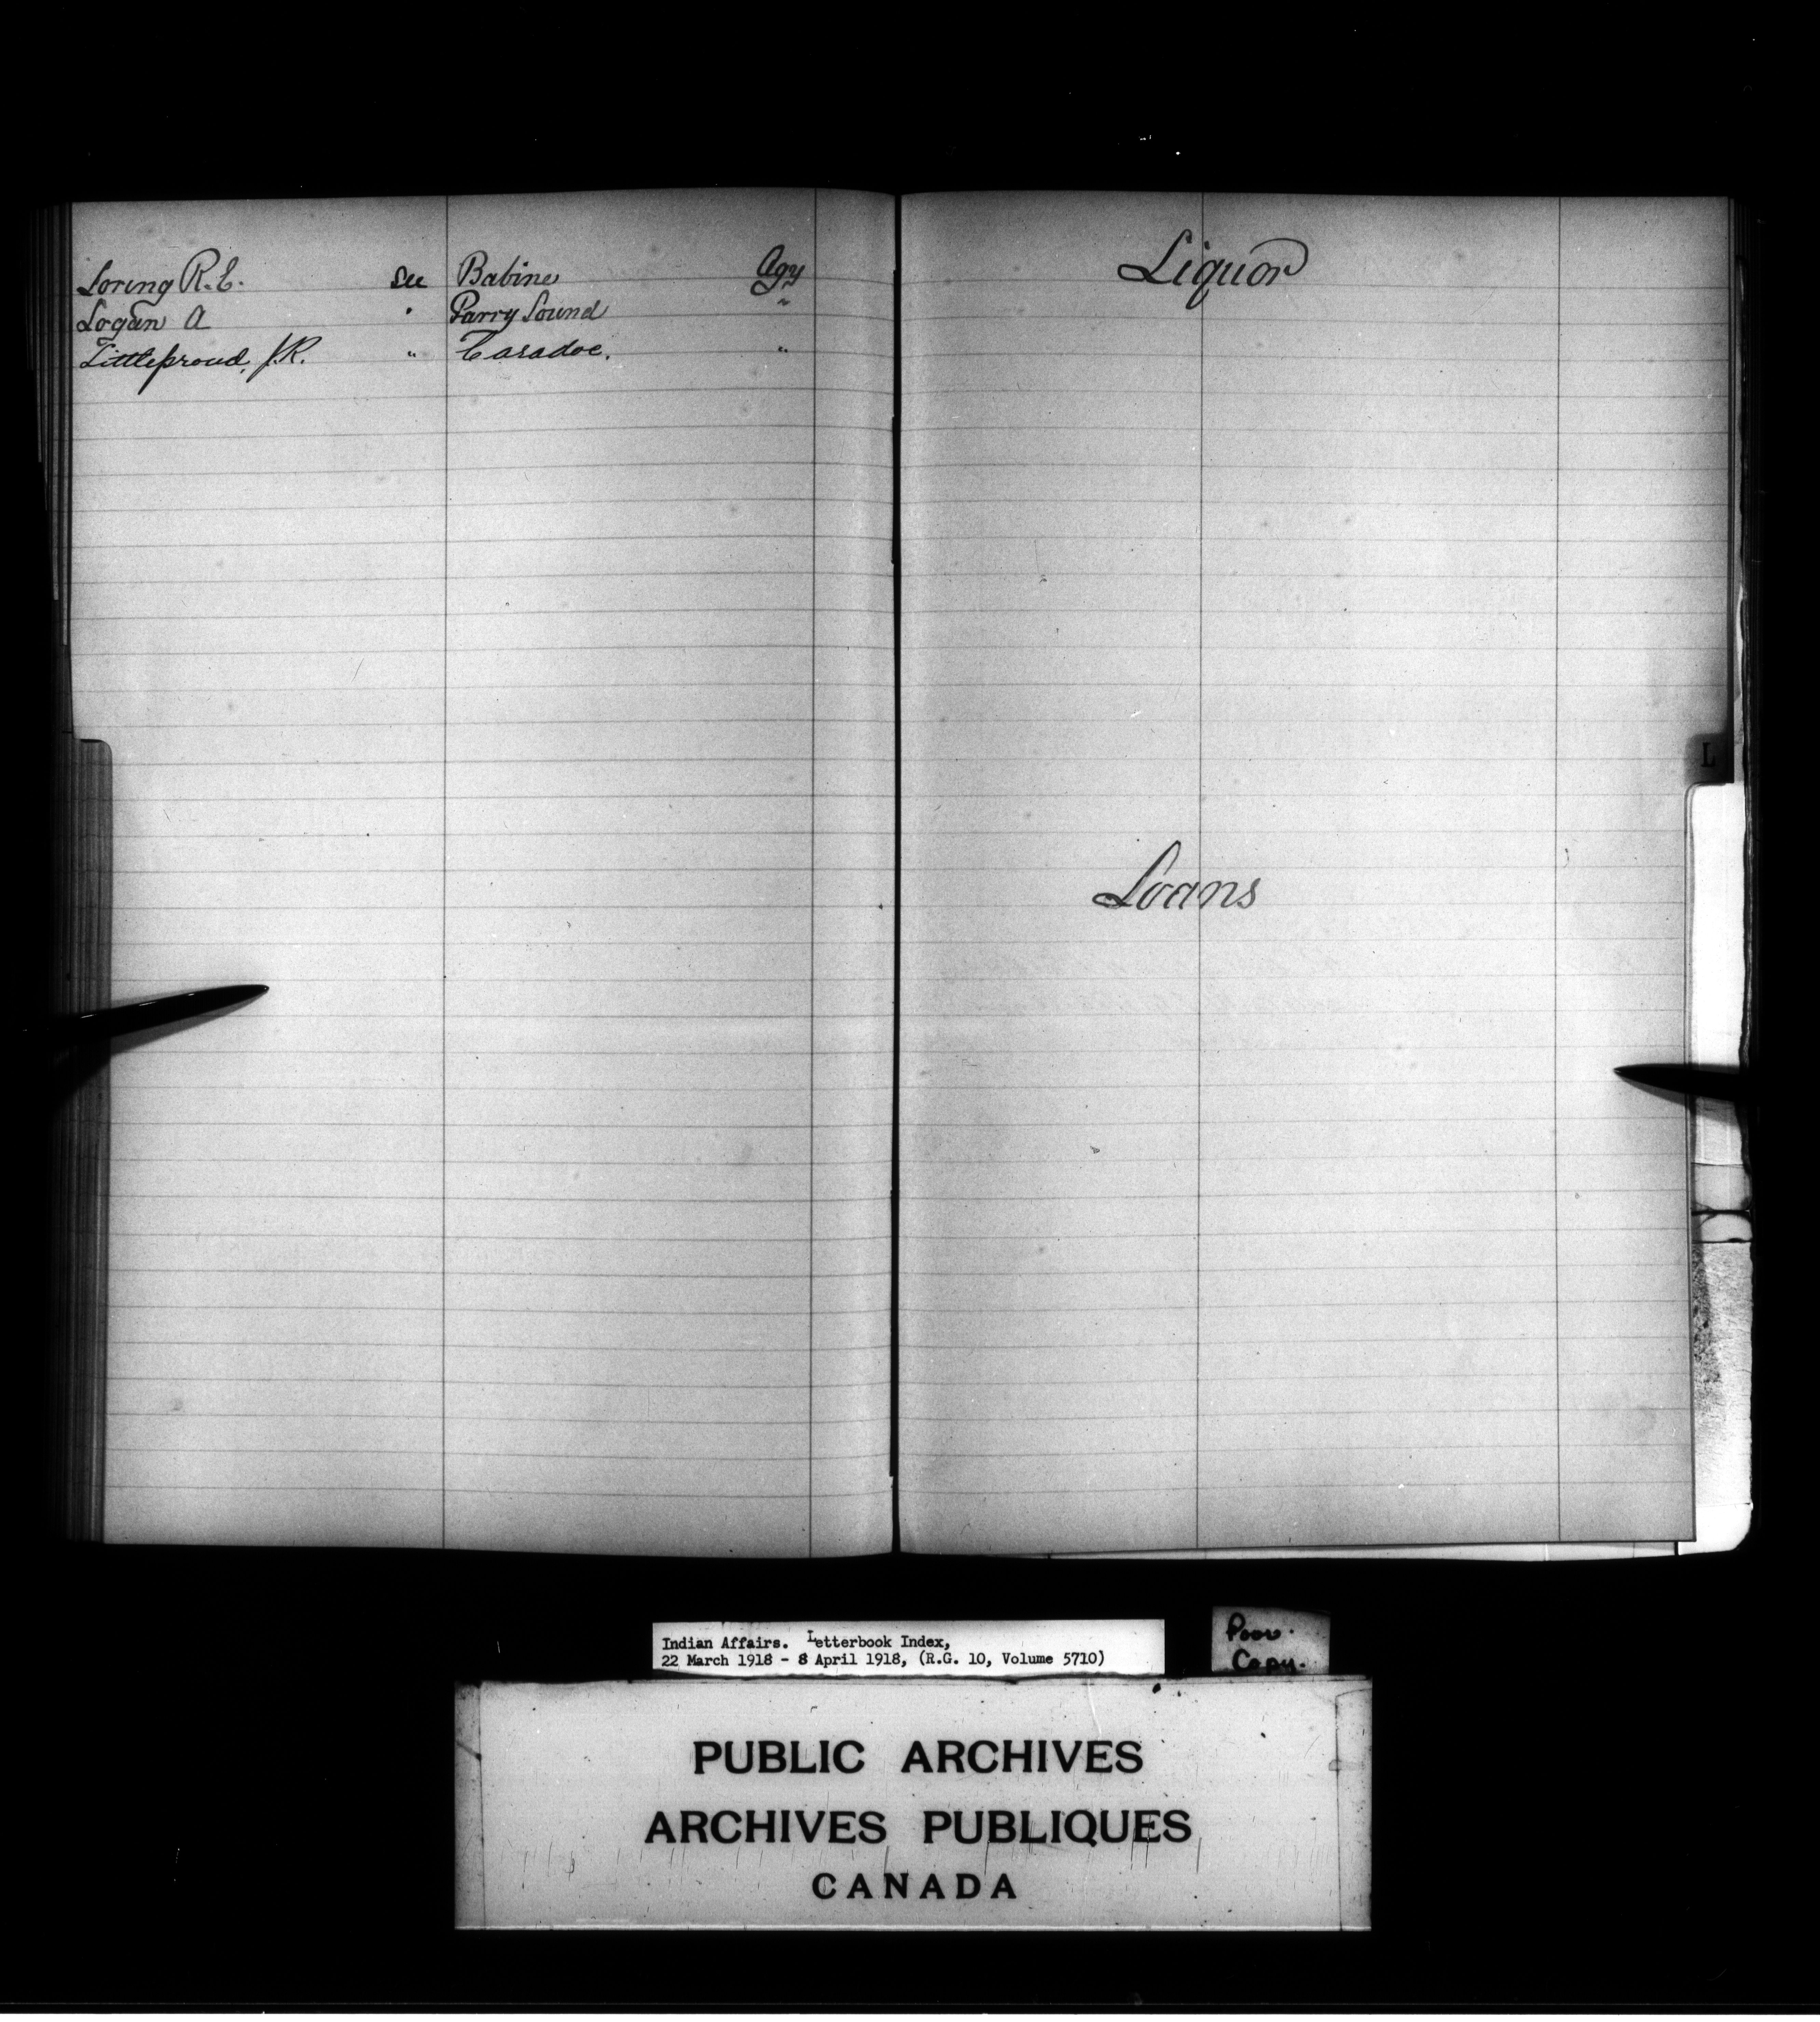 Loring R.E. see Babine Agy
Logan A " Parry Sound "
Littleproud, J.R. " Caradoc. "
Liquor
L
Loans
Indian Affairs. Letterbook Index,
22 March 1918 - 8 April 1918, (R.G. 10, Volume 5710)
Poor.
Copy.
PUBLIC ARCHIVES
ARCHIVES PUBLIQUES
CANADA